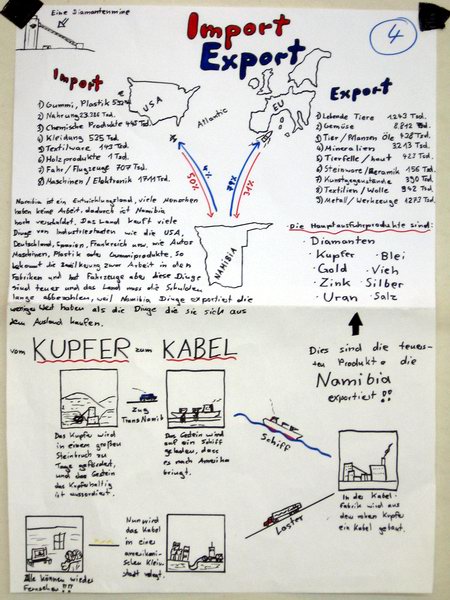 Eine Diamantenmine
Import
Export
4
Import
1) Gummi, Plastik
2) Nahrung
3) Chemische Produkte
4) Kleidung 525 Tsd.
5) Textilware 143 Tsd.
6) Holzprodukte 1 Tsd.
7) Fahr / Flugzeuge 707 Tsd.
8) Maschinen / Elektronik 1711 Tsd.
USA
Atlantic
EU
Export
1) Lebende Tiere 1243 Tsd.
2) Gemüse 8.812
3) Tier / Planzen Öle 438 Tsd.
4) Mineralien 3213 Tsd.
5) Tierfelle / haut 423 Tsd.
6) Steinware / Keramik 156 Tsd.
7) Kunstgegenstände 390 Tsd.
8) Textilien / Wolle 342 Tsd.
9) Metall / Werkzeuge 1273 Tsd.
NAMIBIA
Namibia ist ein Entwicklungsland, viele Menschen
haben keine Arbeit. dadurch ist Namibia
hoch verschuldet. Das Land kauft viele
Dinge von Industriestaaten wie die USA,
Deutschland, Spanien, Frankreich usw. wie Autos
Maschinen, Plastik oder Gummiprodukte. So
bekommt die Bevölkerung zwar Arbeit in den
Fabriken und hat Fahrzeuge aber diese Dinge
sind teuer und das Land muss die Schulden
lange abbezahlen, weil Namibia Dinge exportiert die
weniger Wert haben als die Dinge die sie sich aus
dem Ausland kaufen.
Die Hauptausfuhrprodukte sind:
Diamanten
· Kupfer · Blei
· Gold · Vieh
· Zink · Silber
· Uran · Salz
Dies sind die teuers-
ten Produkte die
Namibia
exportiert!!
vom KUPFER zum KABEL
Zug
TransNamib
Schiff
Das Kupfer wird
in einem großen
Steinbruch zu
Tage gefördert,
und das Gestein
das Kupferhaltig
ist aussortiert.
Das Gestein wird
auf ein Schiff
geladen, dass
es nach Amerika
bringt.
In der Kabel-
fabrik wird aus
dem rohen Kupfer
ein Kabel gebaut.
Laster
Nun wird
das Kabel
in einer
amerikani-
schen Klein-
stadt verlegt.
Alle können wieder
Fernsehen!!